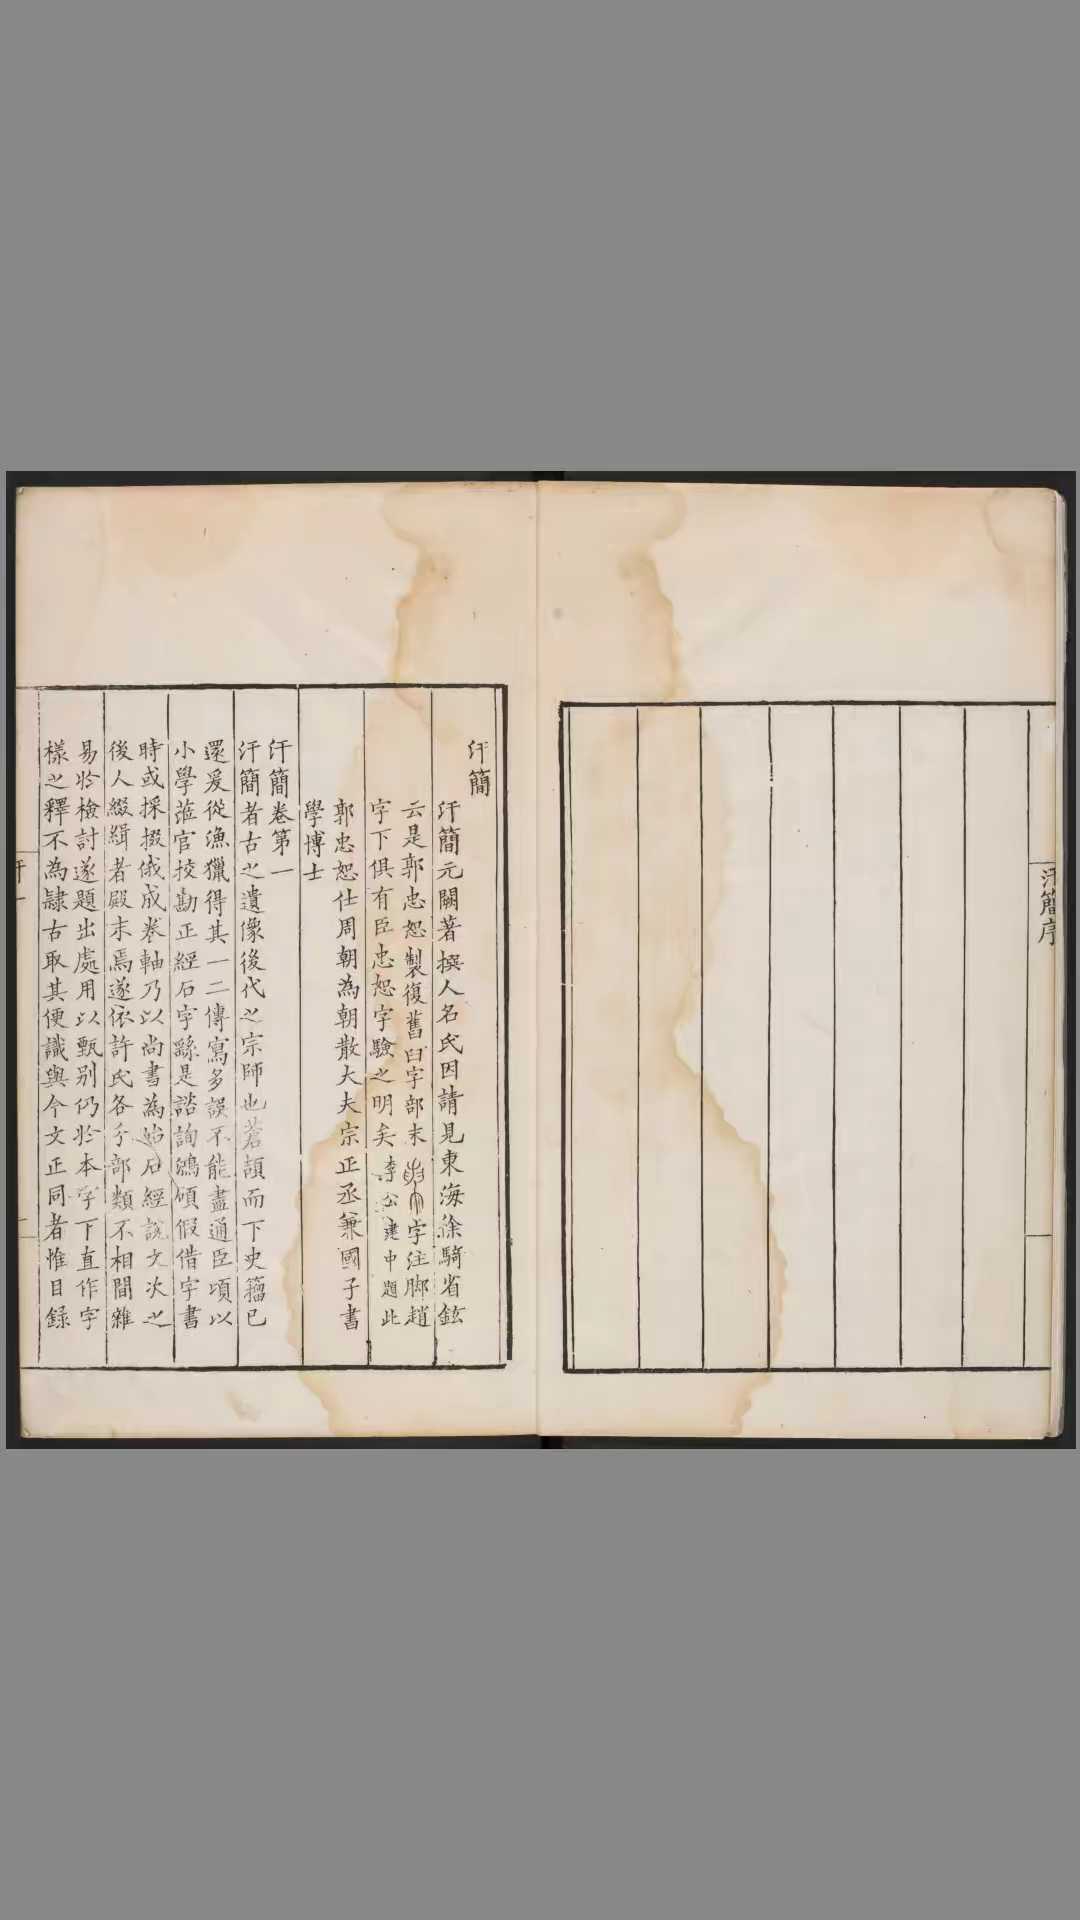 汗簡序
汗簡
汗簡元闕著撰人名氏因請見東海徐騎省鉉
云是郭忠恕製復舊臼字部末字注脚趙
字下俱有臣忠恕字驗之明矣李公建中題此
郭忠恕仕周朝為朝散大夫宗正丞兼國子書
學博士
汗簡卷第一
汗簡者古之遺像後代之宗師也蒼頡而下史籀已
還爰從漁獵得其一二傳寫多誤不能盡通臣頃以
小學蒞官挍勘正經石字繇是諮詢鴻碩假借字書
時或採掇俄成卷軸乃以尚書為始石經說文次之
後人綴緝者殿末焉遂依許氏各分部類不相間雜
易於檢討遂題出處用以甄别仍於本字下直作字
樣之釋不為隸古取其便識與今文正同者惟目録